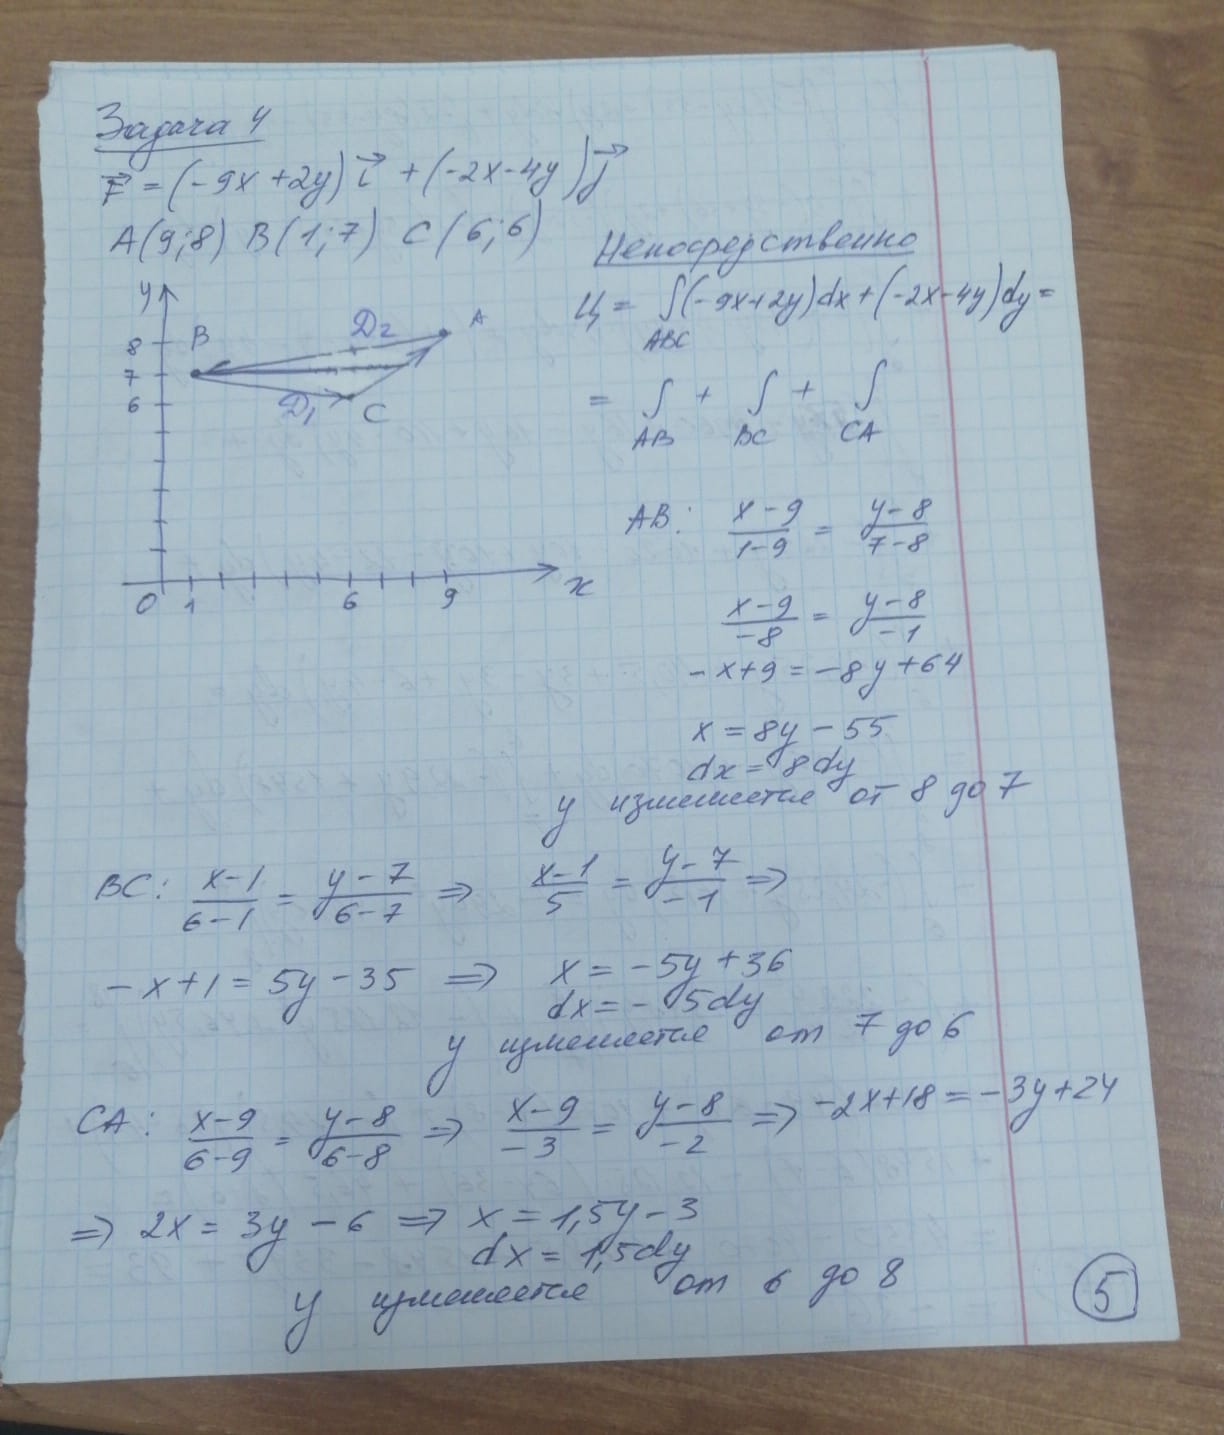 Задача 4
F⃗ = (-9x+2y) i⃗ + (-2x-4y) j⃗
A(9;8) B(1;7) C(6;6)
Непосредственно
Ц = ∫(-9x+2y)dx+(-2x-4y)dy =
ABC
= ∫ + ∫ + ∫
AB BC CA
y
8
7
6
B
D₂
A
D₁
C
0 1 6 9 x
AB: (x-9)/(1-9) = (y-8)/(7-8)
(x-9)/(-8) = (y-8)/(-1)
-x+9 = -8y+64
x = 8y-55
dx = 8dy
y изменяется от 8 до 7
BC: (x-1)/(6-1) = (y-7)/(6-7) ⇒ (x-1)/5 = (y-7)/(-1) ⇒
-x+1 = 5y-35 ⇒ x = -5y+36
dx = -5dy
y изменяется от 7 до 6
CA: (x-9)/(6-9) = (y-8)/(6-8) ⇒ (x-9)/(-3) = (y-8)/(-2) ⇒ -2x+18 = -3y+24
⇒ 2x = 3y-6 ⇒ x = 1,5y-3
dx = 1,5dy
y изменяется от 6 до 8
5